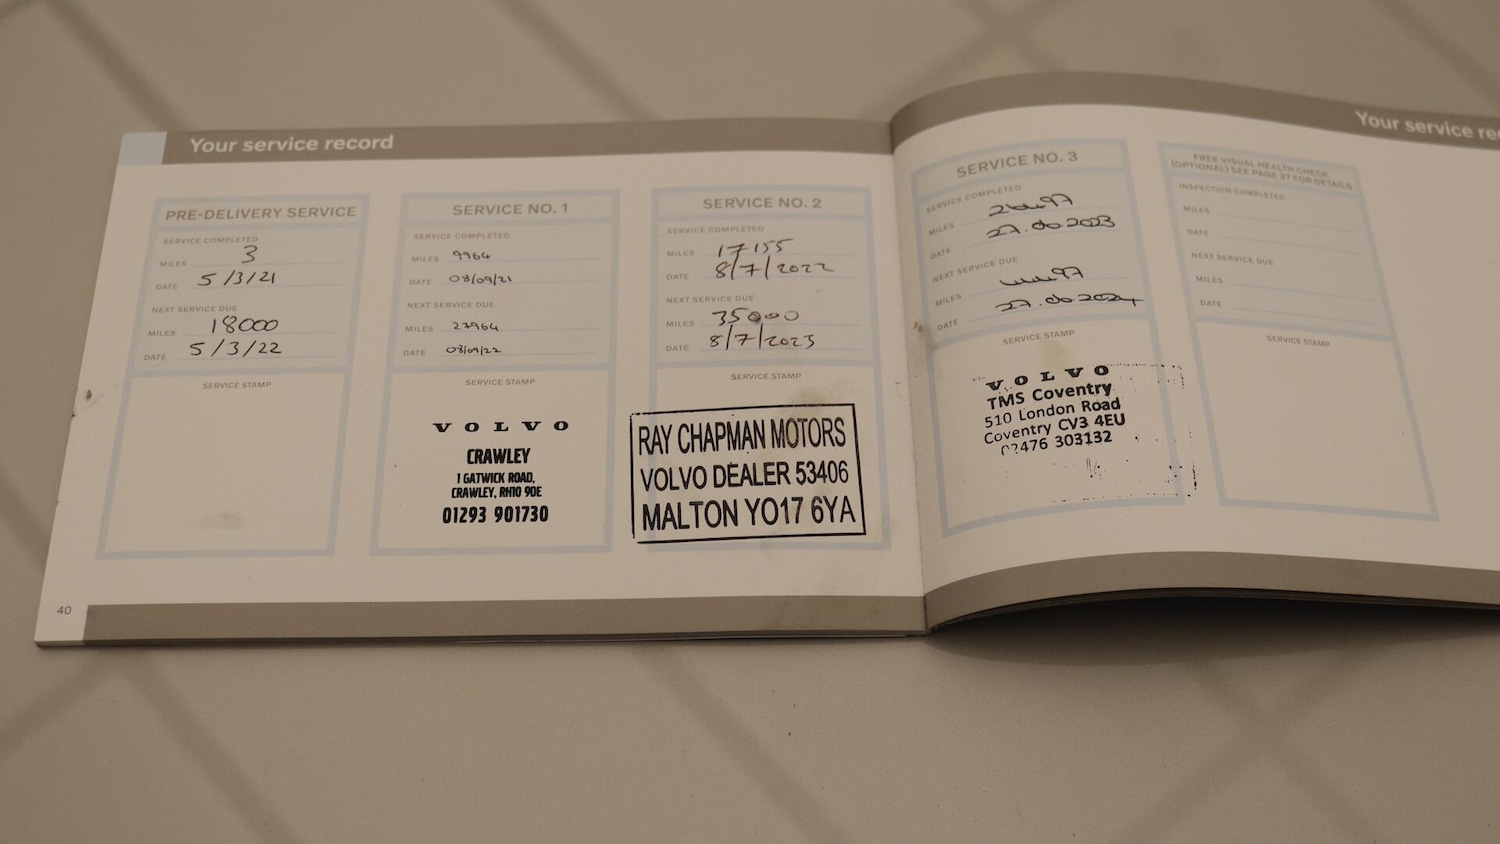 Your service record
PRE-DELIVERY SERVICE
SERVICE COMPLETED
MILES 3
DATE 5/3/21
NEXT SERVICE DUE
MILES 18000
DATE 5/3/22
SERVICE STAMP
SERVICE NO. 1
SERVICE COMPLETED
MILES 9964
DATE 08/09/21
NEXT SERVICE DUE
MILES 27964
DATE 08/09/22
SERVICE STAMP
VOLVO
CRAWLEY
1 GATWICK ROAD,
CRAWLEY, RH10 9DE
01293 901730
SERVICE NO. 2
SERVICE COMPLETED
MILES 17155
DATE 8/7/2022
NEXT SERVICE DUE
MILES 35000
DATE 8/7/2023
SERVICE STAMP
RAY CHAPMAN MOTORS
VOLVO DEALER 53406
MALTON YO17 6YA
40
Your service
SERVICE NO. 3
SERVICE COMPLETED
MILES
DATE 27.06.2023
NEXT SERVICE DUE
MILES
DATE 27.06.2024
SERVICE STAMP
VOLVO
TMS Coventry
510 London Road
Coventry CV3 4EU
02476 303132
FREE VISUAL HEALTH CHECK
(OPTIONAL) SEE PAGE 37 FOR DETAILS
INSPECTION COMPLETED
MILES
DATE
NEXT SERVICE DUE
MILES
DATE
SERVICE STAMP